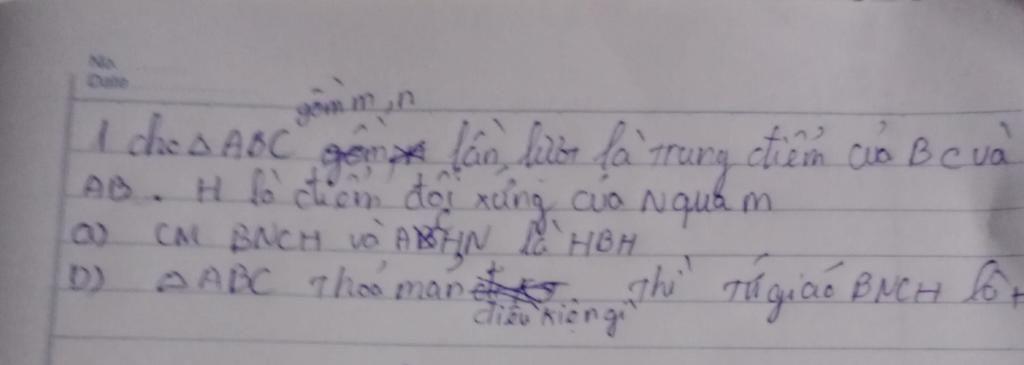 No.
Date
gồm m, n
1 cho △ ABC lần lượt là trung điểm của BC và
AB. H là điểm đối xứng của N qua m
a) CM BNCH và
HN là HBH
b) △ ABC thoả mãn thì tứ giác BNCH là
điều kiện gì